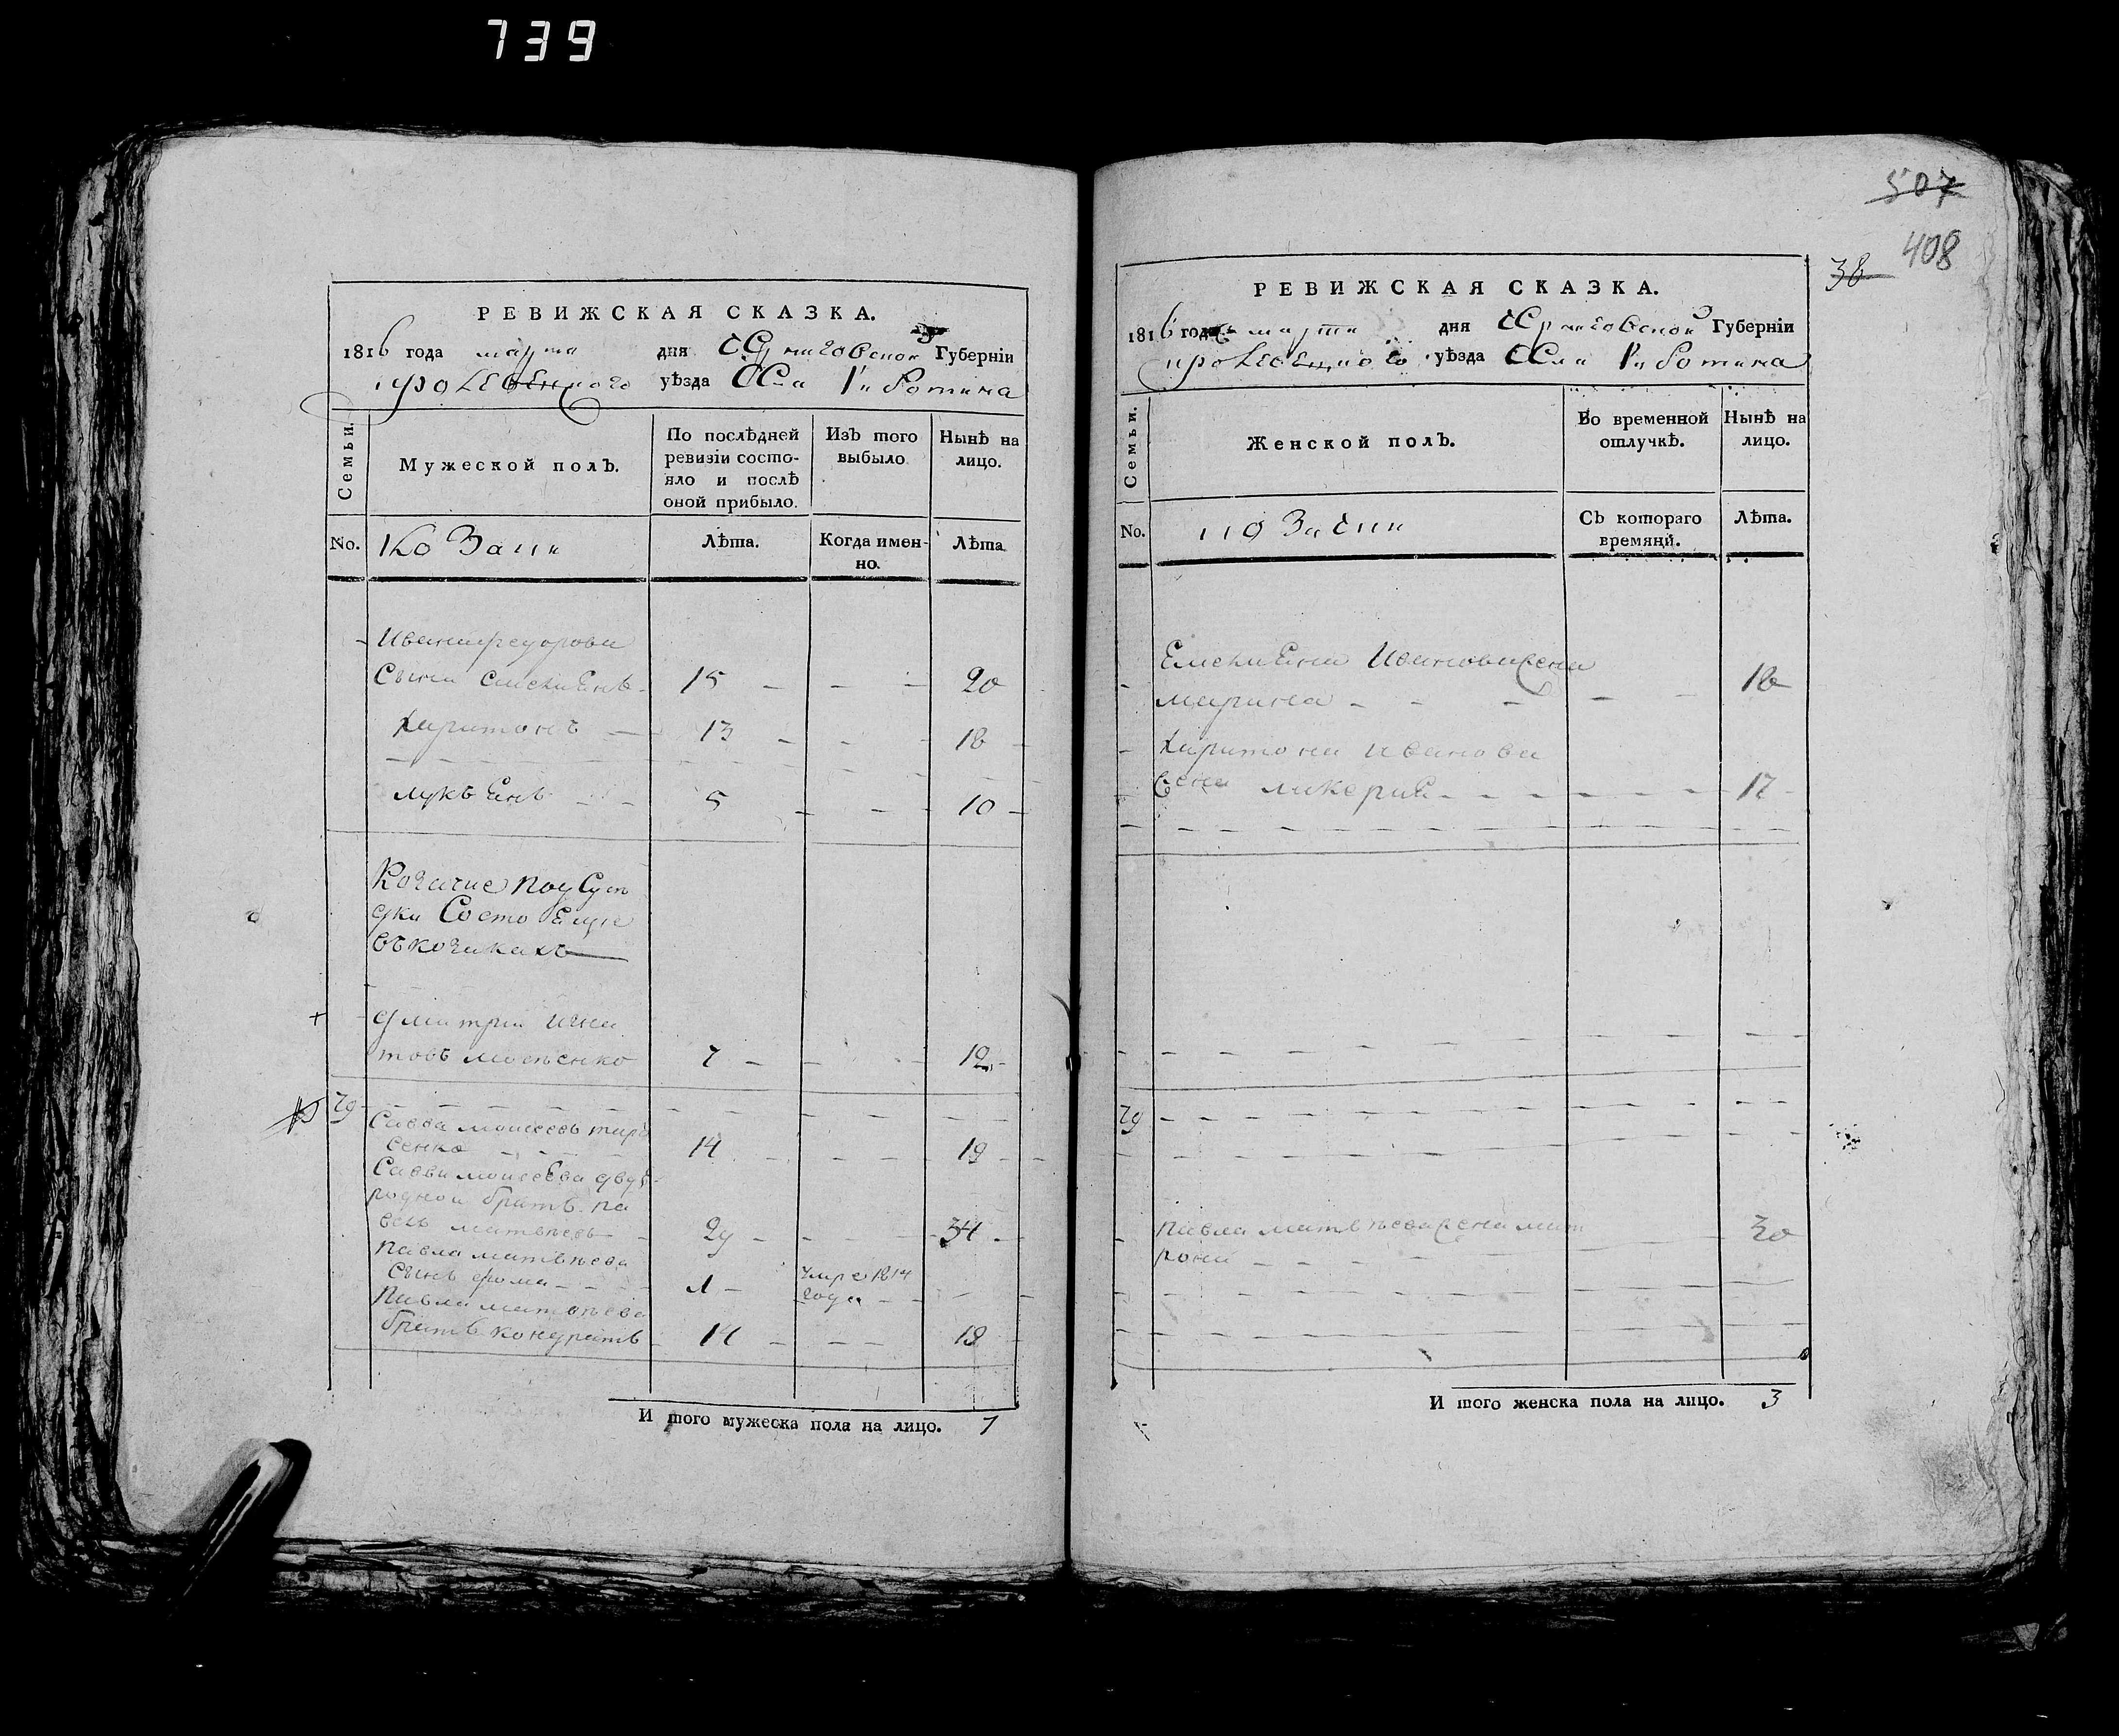 739
РЕВИЖСКАЯ СКАЗКА.
1816 года марта дня Черниговской Губерніи
кролевецкого уѣзда Села
Семьи.
Мужеской полъ.
По послѣдней ревизіи состо-
яло и послѣ
оной прибыло.
Изъ того выбыло
Нынѣ на лицо.
No.
Козаки
Лѣта.
Когда имен-
но.
Лѣта.
Ивана федорова
Сини 15 20
Харитонъ 13 18
лукъянъ 5 10
Козачие подсусѣ
дки Состоящие
въ козаках
дмитрии игна
товъ 7 12
Савва моисеевъ тара
сенко 14 19
Савви моисеева двою
родной братъ па
велъ матвѣевъ 29 34
павла матвѣева
Синъ фома 1 умре 1814
года
павла матвѣева
братъ кондратъ 14 19
И того мужеска пола на лицо. 7
507
408
38
РЕВИЖСКАЯ СКАЗКА.
1816 года марта дня Черниговской Губерніи
кролевецкого уѣзда Села
Семьи.
Женской полъ.
Во временной
отлучкѣ.
Нынѣ на
лицо.
No.
козачки
Съ котораго
времяни.
Лѣта.
Емелиана Иванова жена
марина 18
Харитона иванова
жена ликерия 17
павла матвѣева жена мат
рона 30
И того женска пола на лицо. 3